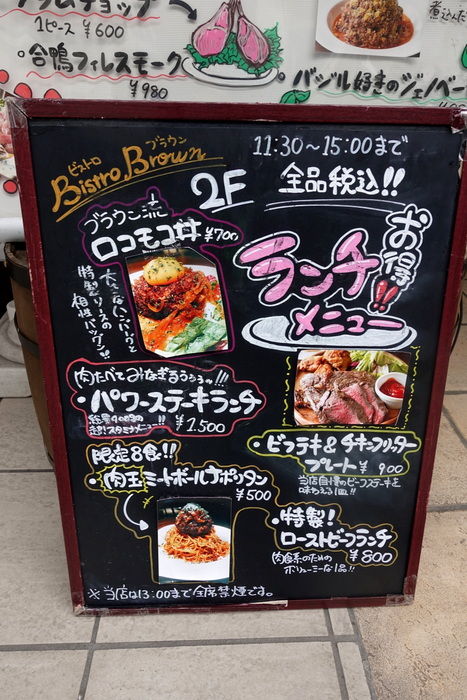 1ピース ¥600
合鴨フィレスモーク
¥980
バジル好きのジェノベー
ビストロ
ブラウン
Bistro Brown
2F
11:30~15:00まで
全品税込!!
お得!!
ランチ
メニュー
ブラウン流
ロコモコ丼 ¥700
大きなハンバーグと
特製ソースの
相性バツグン!!
肉たべてみなぎるぅぅぅっ!!!
・パワーステーキランチ
¥1,500
限定8食!!
・肉玉ミートボールナポリタン
¥500
・ビフテキ&チキンフリッター
プレート ¥900
当店自慢のビーフステーキを
味わえる1皿!!
・特製!
ローストビーフランチ
¥800
肉食系のための
ボリューミーな1品!!
※当店は13:00まで全席禁煙です。